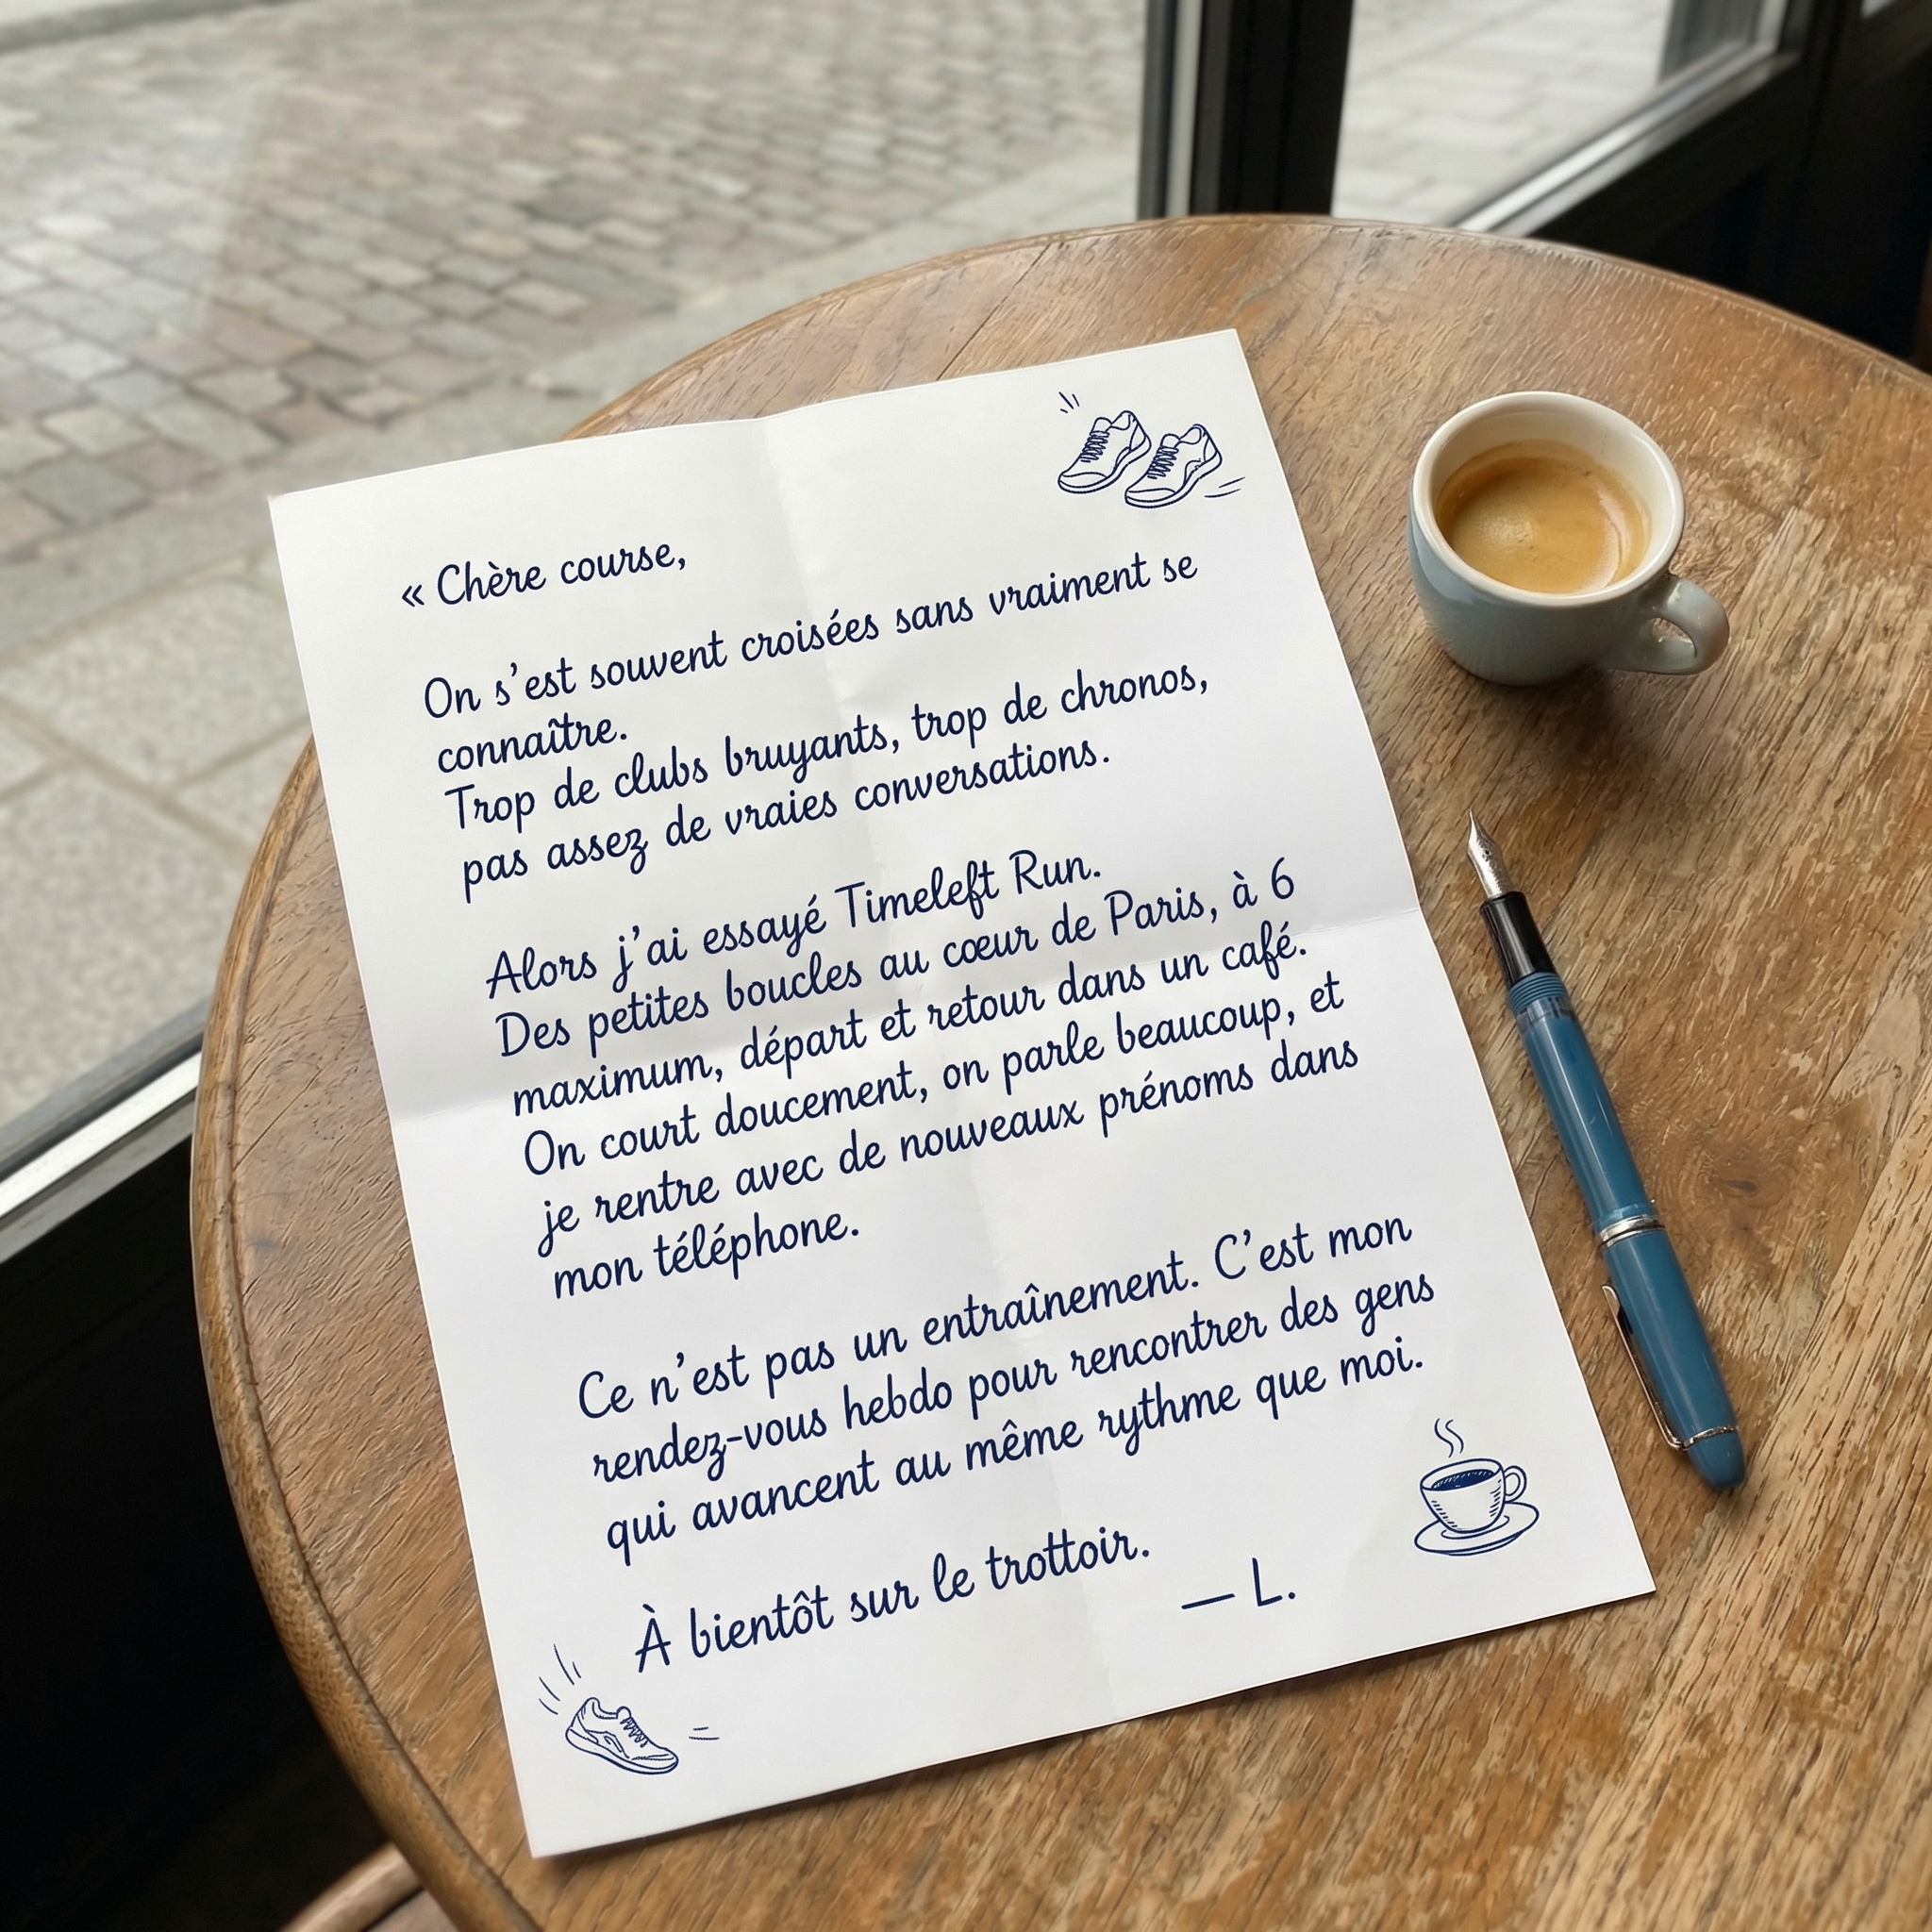 « Chère course,
On s’est souvent croisées sans vraiment se
connaître.
Trop de clubs bruyants, trop de chronos,
pas assez de vraies conversations.
Alors j’ai essayé Timeleft Run.
Des petites boucles au cœur de Paris, à 6
maximum, départ et retour dans un café.
On court doucement, on parle beaucoup, et
je rentre avec de nouveaux prénoms dans
mon téléphone.
Ce n’est pas un entraînement. C’est mon
rendez-vous hebdo pour rencontrer des gens
qui avancent au même rythme que moi.
À bientôt sur le trottoir.
— L.